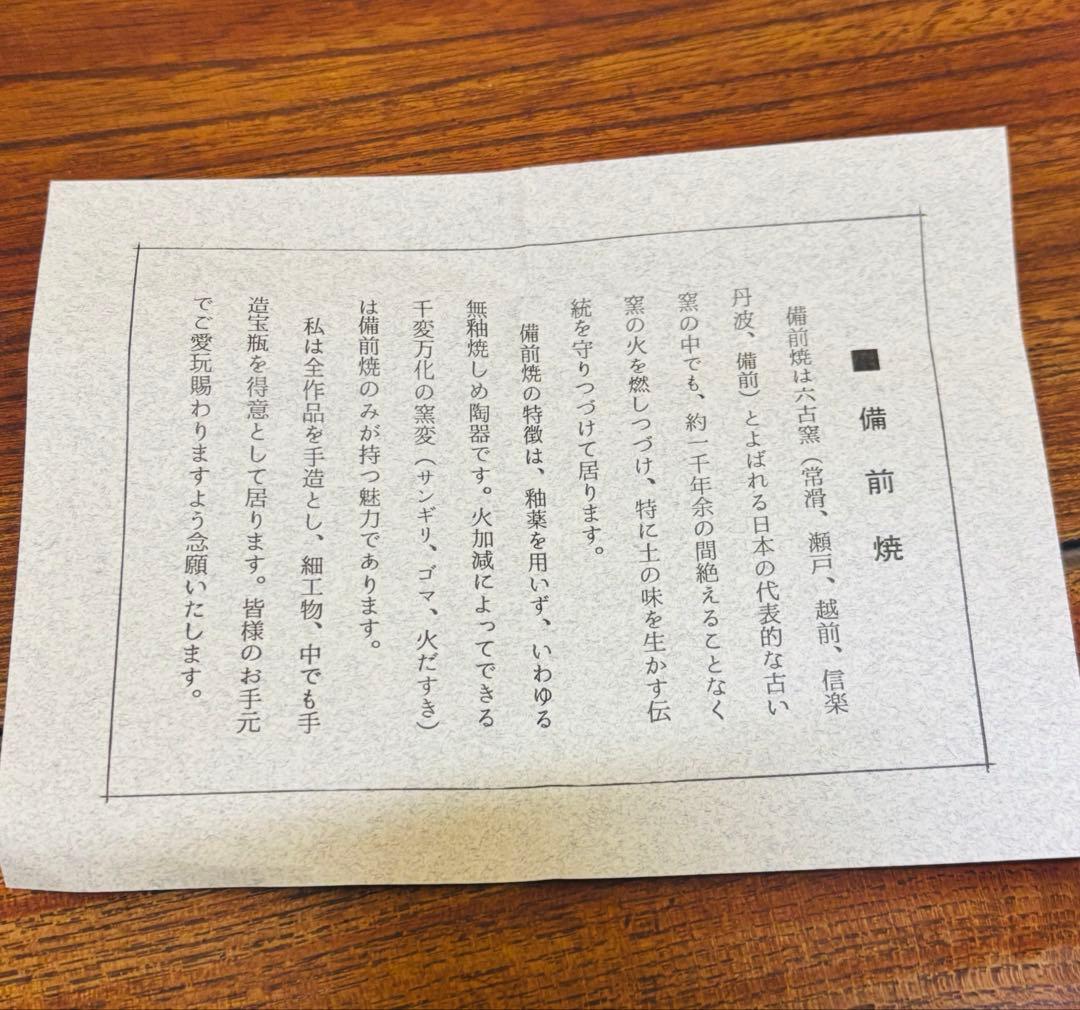 ■備前焼
備前焼は六古窯（常滑、瀬戸、越前、信楽
丹波、備前）とよばれる日本の代表的な古い
窯の中でも、約一千年余の間絶えることなく
窯の火を燃しつづけ、特に土の味を生かす伝
統を守りつづけて居ります。
備前焼の特徴は、釉薬を用いず、いわゆる
無釉焼しめ陶器です。火加減によってできる
千変万化の窯変（サンギリ、ゴマ、火だすき）
は備前焼のみが持つ魅力であります。
私は全作品を手造とし、細工物、中でも手
造宝瓶を得意として居ります。皆様のお手元
でご愛玩賜わりますよう念願いたします。